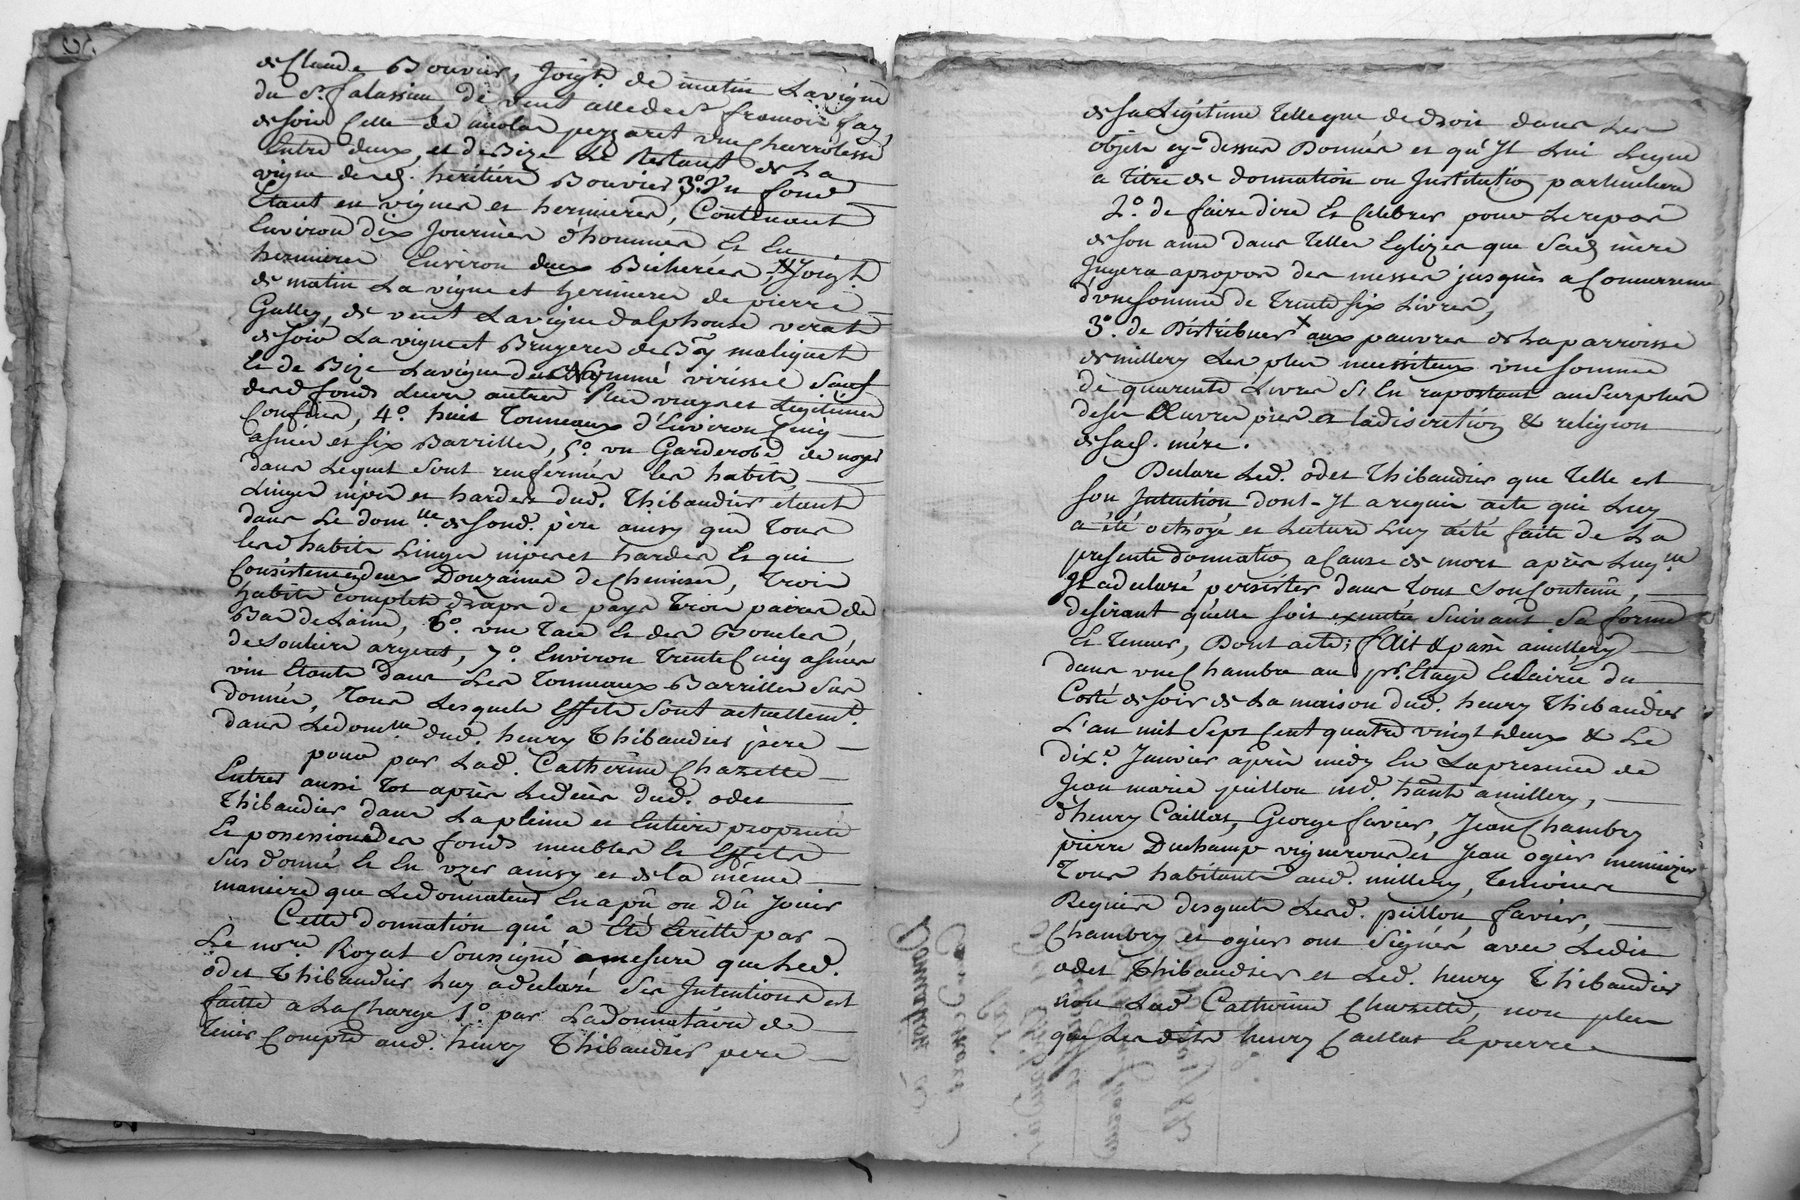 de Claude Bouvier, Joigt. de matin La vigne
du Sr. falassieu de vent celle de Sr francois fay,
de soir Celle de nicolas pezzaret une charrolesse
Entre deux, et de Bize Le Restant de La
vigne desd. heritiers Bouvier, 3o. Un fond
Etant en vignes et hermieres, Contenant
Environ dix Journées d'hommes Et En
hermieres Environ deux Bicherées Joigt.
de matin La vigne et hermieres de pierre
Gulley, de vent La vigne d'alphonse verat
de soir La vigne et Bruyeres de maliquet
Et de Bize La vigne du Nommé virissel Sauf
desd fonds Leurs autres plus vrays et Legitimes
Confins, 4o. huit Tonneaux d'Environ Cinq
asnées et six Barrilles, 5o. un Garderobe de noyer
dans Lequel sont renfermés les habits
Linges nipes et hardes dud. Thibaudier étant
dans Le domlle. de sond. père ainsy que Tous
lesd habits Linges nipes et hardes Et qui
Consistent en deux Douzaines de Chemises, Trois
habits complets draps de pays Trois paires de
Bas de Laine, 6o. une Tace Et des Boucles
de souliers argent, 7o. Environ Trente Cinq asnées
vin Etants dans Les Tonneaux Barrilles sus
donnés, Tous Lesquels Effets sont actuellemt.
dans Le domlle dud. henry Thibaudier père
pour par Lad. Catherine Chazette
Entrer aussi Tot après Le décès dud. odet
Thibaudier dans La pleine et Entiere proprieté
Et possession des fonds meubles Et Effets
sus donné Et En uzer ainsy et de la même
maniere que Le donnateur En a pû ou Dû Jouir
Cette donnation qui a Eté Ecritte par
Le nore. Royal soussigné a mesure que Led.
odet Thibaudier Luy a declaré ses Intentions est
faitte a La Charge 1o. par La donnataire de
Tenir Compte aud. henry Thibaudier pere
de sa Légitime Telle que de droit dans Les
objets cy-dessus Donnés et qu'Jl Lui Legue
a Titre de donnation ou Institution particuliere
2o. de faire dire Et Celebrer pour Le repos
de son ame dans Telles Eglizes que sad. mère
Jugera apropos des messes jusques a Concurrence
d'une somme de Trente six Livres,
3o. de Distribuer aux pauvres de La parroisse
de millery Les plus necessiteux une somme
de quarente Livres S'En raportant au surplus
de ses OEuvres pies a la discretion & religion
de sad. mére.
Declare Led. odet Thibaudier que Telle est
son Intention dont Jl a requis acte qui Luy
a été octroyé et Lecture Luy aété faite de La
presente donnation a Cause de mort après Laqlle
Jl a declaré persister dans tout son Contenu,
desirant qu'elle soit executée suivant sa forme
Et Teneur, Dont acte; fait & passé a millery
dans une Chambre au pr. Etage Eclairée du
Costé de soir de La maison dud. henry Thibaudier
L'an mil sept Cent quatre vingt deux & Le
dixe. Janvier après midy En La presence de
Jean marie pillion md. habt. a millery,
d'henry Caillot, George favier, Jean Chambry
pierre Duchamp vignerons et Jean ogier menuizier
Tous habitants aud. millery, Temoins
Requis desquels Lesd. pillion, favier,
Chambry et ogier ont signés avec Ledit
odet Thibaudier et Led. henry Thibaudier
non Lad Catherine Chazette, non plus
que Les dits henry Caillot Et pierre